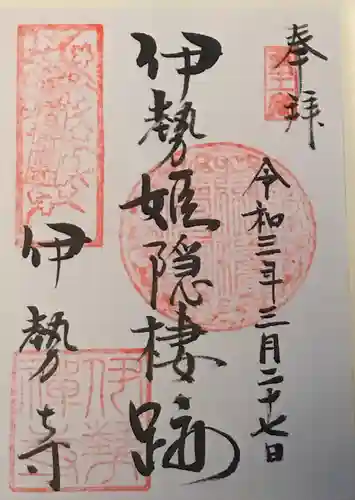 奉拝
令和三年三月二十七日
伊勢姫隠棲跡
伊勢寺
伊勢禅寺